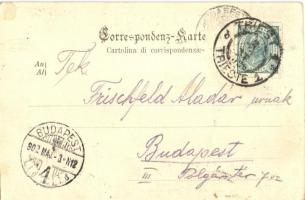 Correspondenz-Karte
Cartolina di corrispondenza
An
Al
Tek
Frischfeld Aladár urnák
Budapest
III
TRIEST
TRIESTE 1
BUDAPEST
902 MÁJ